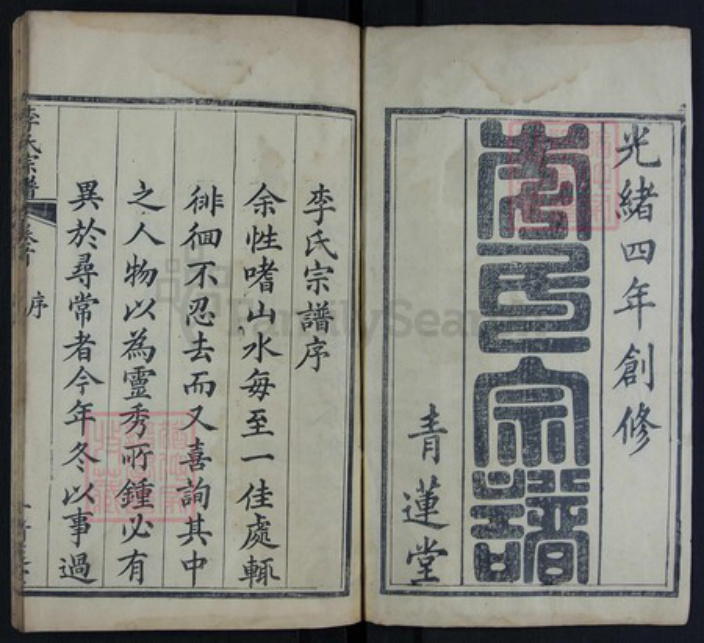 光緒四年創修
李氏宗譜
青蓮堂
李氏宗譜序
余性嗜山水每至一佳處輒
徘徊不忍去而又喜詢其中
之人物以為靈秀所鍾必有
異於尋常者今年冬以事過
李氏宗譜
卷首
序
FamilySearch